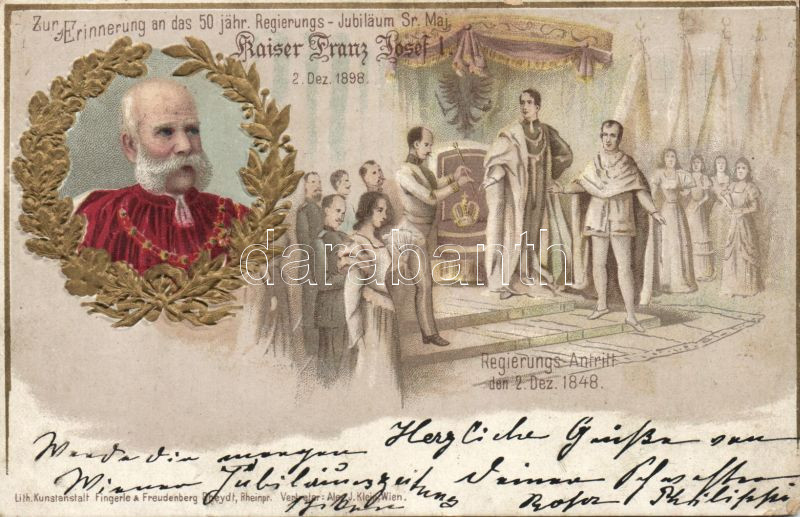 Zur Erinnerung an das 50 jähr. Regierungs-Jubiläum Sr. Maj.
Kaiser Franz Josef I.
2. Dez. 1898.
darabanth
Regierungs-Antritt
den 2. Dez. 1848.
Werde dir morgen
Wiener Jubiläumszeitung
Herzliche Grüße von
deiner Schwester
Philippi
Lith. Kunstanstalt Fingerle & Freudenberg Rheydt, Rheinpr. Vertreter: Alex. J. Klein, Wien.